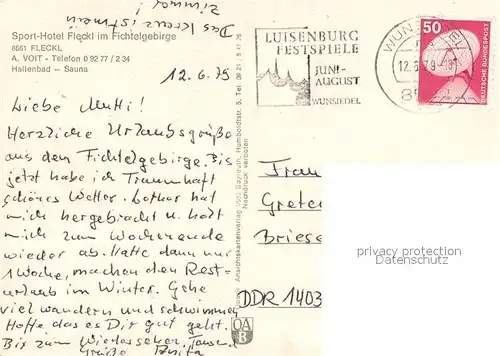 Das Kreuz ist mein
Zimmer
Sport-Hotel Fleckl im Fichtelgebirge
8661 FLECKL
A. VOIT - Telefon 0 92 77 / 2 34
Hallenbad — Sauna
12.6.79
Liebe Mutti!
Herzliche Urlaubsgrüße
aus dem Fichtelgebirge. Bis
jetzt habe ich Traumhaft
schönes Wetter. Lothar hat
mich hergebracht u. holt
mich zum Wochenende
wieder ab. Hatte dann nur
1 Woche, machen den Rest-
urlaub im Winter. Gehe
viel wandern und schwimmen
Hoffe das es Dir gut geht.
Bis zum Wiedersehen. Tausend
Grüße Anita
Ansichtskartenverlag Bayreuth, Humboldtstr. 5, Tel. 09 21
Nachdruck verboten
OAB
LUISENBURG
FESTSPIELE
JUNI-
AUGUST
WUNSIEDEL
WUNSIEDEL
12.6.79
50
DEUTSCHE BUNDESPOST
Frau
Grete
Briese
DDR 1403
privacy protection
Datenschutz